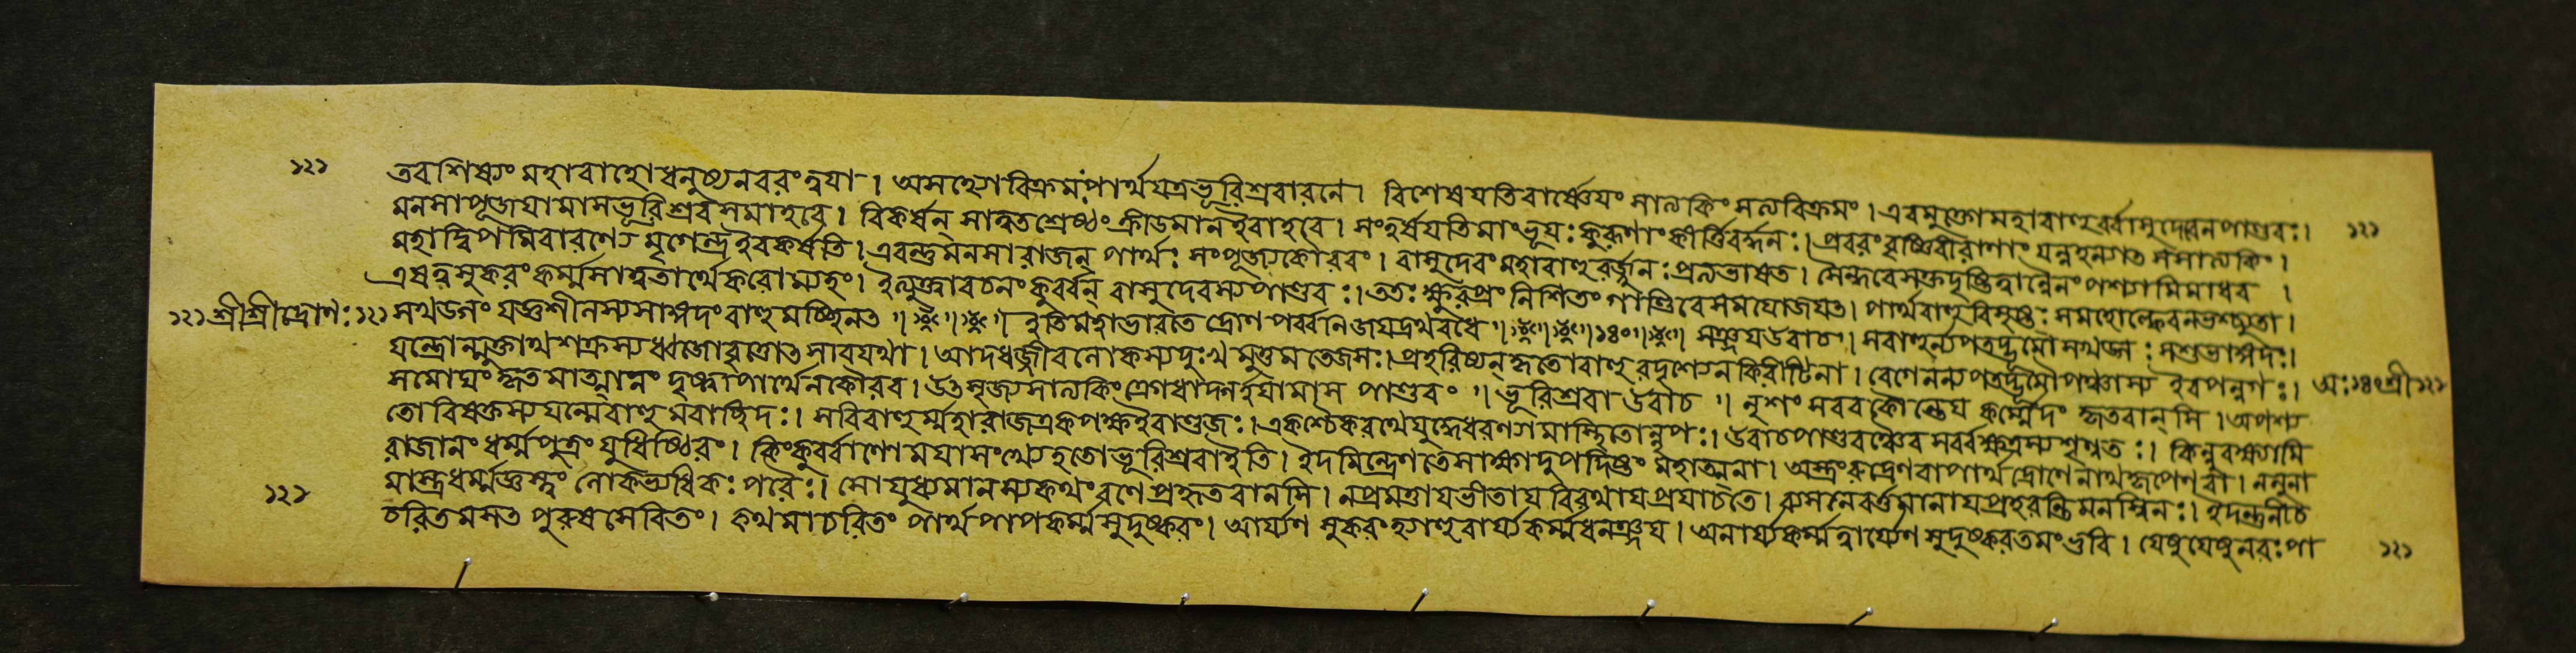 ১২১ তবশিষ্যং মহাবাহোধনুষ্যনবরংত্বয়া । অসহ্যেগবিক্রমংপার্থযত্রভূরিশ্রবারনে । বিশেষয়তিবার্ষ্ণেয়ং সাত্যকিং সত্যবিক্রমং । এবমুক্তোমহাবাহুর্ব্বাসুদেবেনপাণ্ডবঃ । ১২১
মনসাপূজয়ামাসভূরিশ্রবসমাহবে । বিকর্ষন্ সাত্বতশ্রেষ্ঠং ক্রীডমানইবাহবে । সংহর্ষয়তিমাংভূয়ঃ কুরূণাংকীর্ত্তিবর্দ্ধনঃ । প্রবরংবৃষ্ণিবীরাণাং যন্নহন্যাতসসাত্যকিং ।
মহাদ্বিপমিবারণ্যে মৃগেন্দ্রইবকর্ষতি । এবন্তুমনসারাজন্ পার্থঃ সংপূজ্যকৌরবং । বাসুদেবং মহাবাহুরর্জ্জুনঃ প্রত্যভাষত । সৈন্ধবেসক্তদৃষ্টিত্বান্নৈনংপশ্যামিমাধব ।
এষত্বসুকরংকর্ম্মসাত্বতার্থেকরোম্যহং । ইত্যুক্ত্বাবচনংকুর্ব্বন্ বাসুদেবস্যপাণ্ডবঃ । ততঃ ক্ষুরপ্রং নিশিতং গাণ্ডিবেসমযোজয়ত । পার্থবাহুবিসৃষ্টঃ সমহোল্কেবনভশ্চ্যুতা ।
১২১ শ্রীশ্রীদ্রোণঃ ১২১ সখড়্গং যজ্ঞশীলস্যসাঙ্গদংবাহুমচ্ছিনত ॥ ॥ ॥ ইতিমহাভারতে দ্রোণপর্ব্বনিজয়দ্রথবধে ॥ ॥ ॥ ১৪০ ॥ ॥ সঞ্জয়উবাচ ॥ সবাহুর্ন্যপতদ্ভূমৌসখড়্গঃ সশুভাঙ্গদঃ ।
যন্ত্রোন্মুক্তাথশক্রস্যধ্বজোবৃত্রোতসাবযথা । আদধজ্জীবলোকস্যদুঃখমুত্তমতেজসঃ । প্রহরিষ্যনহৃতোবাহুরদৃশ্যেনকিরীটিনা । বেগেনন্যপতদ্ভূমৌপঞ্চাস্য ইবপন্নগঃ । অঃ ১৪১ শ্রী ১২১
সমোঘংকৃতমাত্মানং দৃষ্ট্বাপার্থেনকৌরব । উৎসৃজ্যসাত্যকিংক্রোধাদ্গর্হয়ামাস পাণ্ডবং ॥ ভূরিশ্রবাউবাচ ॥ নৃশংসবতকৌন্তেয় কর্ম্মেদং কৃতবানসি । অপশ্য
তোবিষক্তস্যযন্মেবাহুমবাচ্ছিদঃ । সবিবাহুর্ম্মহারাজএকপক্ষইবাণ্ডজঃ । একশ্চৈকরথেযুদ্ধেধরণ্যামাস্থিতোনৃপঃ । উবাচপাণ্ডবঞ্চৈব সর্ব্বক্ষত্রস্যশৃন্বতঃ । কিন্নুবক্ষ্যামি
রাজানং ধর্ম্মপুত্রং যুধিষ্ঠিরং । কিংকুর্ব্বাণোময়াসংখ্যেহতোভূরিশ্রবাইতি । ইদমিন্দ্রেণতেসাক্ষাদুপদিষ্টং মহাত্মনা । অস্ত্রংরুদ্রেণবাপার্থ দ্রোণেনাথকৃপেণবা । ননুনা
১২১ মাস্ত্রধর্ম্মজ্ঞস্ত্বং লোকেভ্যধিকঃ পরৈঃ । সোযুধ্যমানস্যকথংরণে প্রহৃতবানসি । নপ্রমত্তায়ভীতায়বিরথায়প্রযাচতে । ব্যসনেবর্ত্তমানোয়প্রহরন্তিমনস্বিনঃ । ইদন্তুনীচ
চরিতমসত পুরুষসেবিতং । কথমাচরিতং পার্থপাপকর্ম্মসুদুষ্করং । আর্য্যেণ সুকরংহ্যাহুরার্য্যকর্ম্মধনঞ্জয় । অনার্য্যকর্ম্মত্বার্য্যেণ সুদুষ্করতমংভুবি । যেষুযেষুনরঃপা ১২১